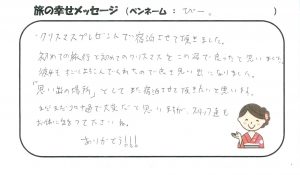 旅の幸せメッセージ（ペンネーム：びー。）
・クリスマスプレゼントで宿泊させて頂きました。
初めての旅行と初めてのクリスマスをこの宿で良かったと思います。
彼もとてもよろこんでくれたので良き思い出になりました。
「思い出の場所」としてまた宿泊させて頂きたいと思います。
まだまだコロナ禍で大変だと思いますが、スタッフ達も
お体に気をつけて下さいね。
ありがとう!!!